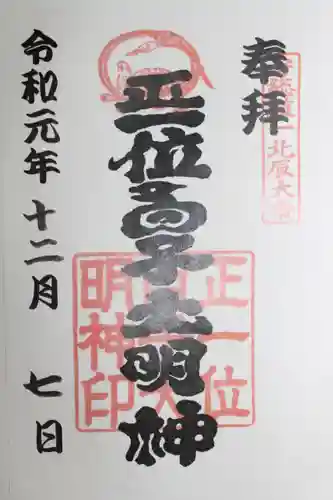 奉拝
北辰大
正一位高子大明神
正一位
明神印
令和元年十二月七日